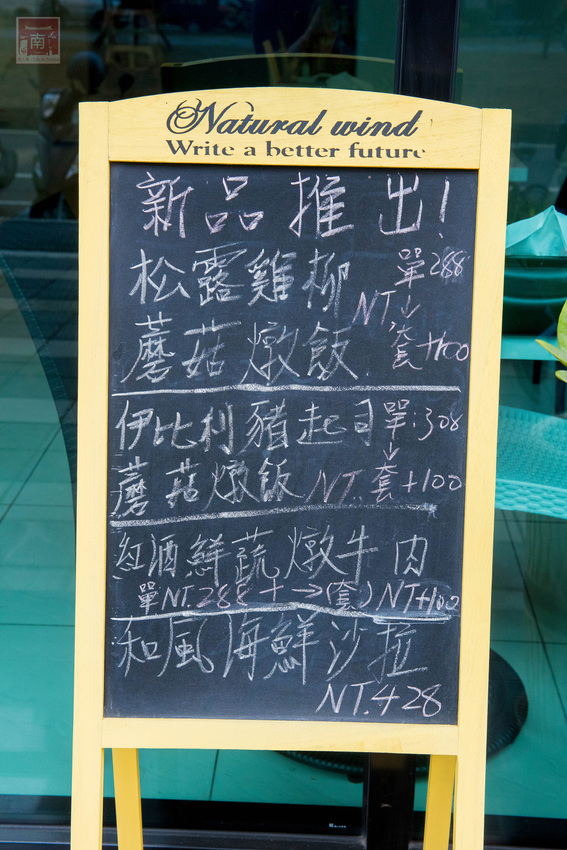 南
Natural wind
Write a better future
新品推出!
松露雞柳 單288
NT↓
蘑菇燉飯 套+100
伊比利豬起司 單:308
↓
蘑菇燉飯 NT. 套+100
紅酒鮮蔬燉牛肉
單NT.288+→(套)NT+100
和風海鮮沙拉
NT.428